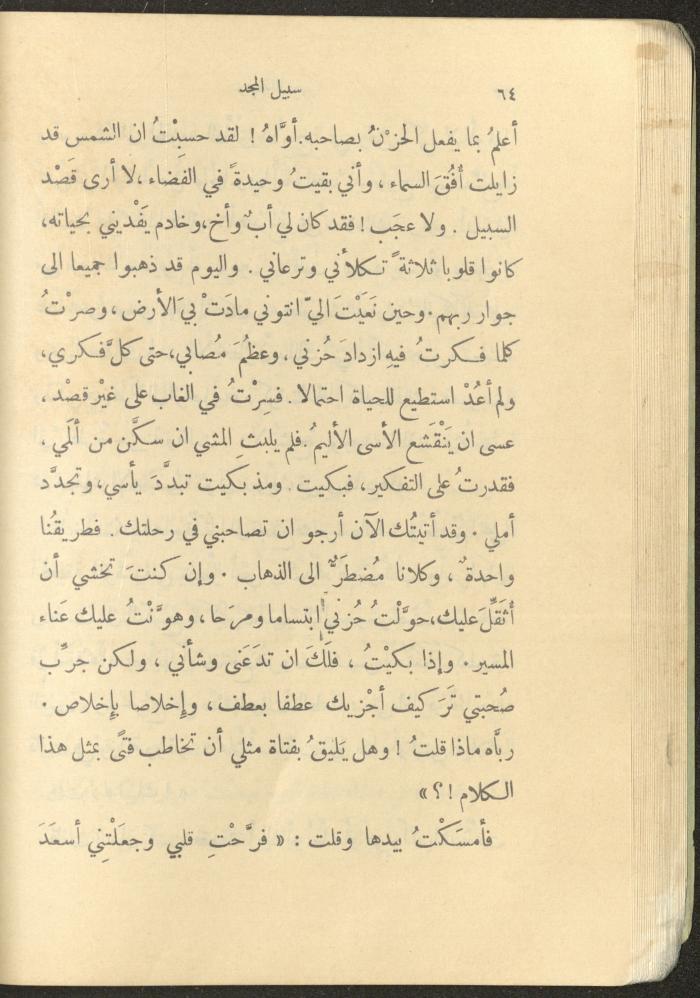 ٦٤ سبيل المجد
أعلمُ بما يفعل الحزْنُ بصاحبه. أوَّاهُ ! لقد حسبْتُ ان الشمس قد
زايلت أُفُقَ السماء ، وأني بقيتُ وحيدةً في الفضاء ،لا أرى قَصْد
السبيل . ولا عجَب ! فقد كان لي أبٌ وأخ،وخادم يَفْديني بحياته،
كانوا قلوبا ثلاثةً تكلأني وترعاني . واليوم قد ذهبوا جميعا الى
جوار ربهم. وحين نَعَيْتَ اليّ انتوني مادَتْ بيَ الأرض ، وصرْتُ
كلما فكرتُ فيهِ ازدادَ حُزني ، وعظُمَ مُصابي،حتى كلَّ فكري،
ولم أعُدْ استطيع للحياة احتمالا . فسِرْتُ في الغاب على غيْر قصْد ،
عسى ان يَنْقَشع الأسى الأليمُ . فلم يلبثِ المشي ان سكَّن من ألَمي ،
فقدرتُ على التفكير، فبكيت . ومذ بكيت تبدَّدَ يأسي، وتجدَّد
أملي . وقد أتيتُك الآن أرجو ان تصاحبني في رحلتك . فطريقُنا
واحدةٌ ، وكلانا مُضطَرٌّ الى الذهاب . وإن كنتَ تخشي أن
أثَقِّلَ عليك،حوَّلْتُ حُزني ابتساما ومرَحا ، وهوَّنْتُ عليك عَناء
المسير . وإذا بكيْتُ ، فلَكَ ان تدَعَنى وشأني ، ولكن جرِّب
صُحبتي تَرَ كيف أجْزيك عطفا بعطف ، وإِخلاصا بإِخلاص .
ربَّاه ماذا قلتُ ! وهل يَليقُ بفتاة مثلي أن تخاطب فتىً بمثل هذا
الكلام !؟ »
فأمسَكْتُ بيدها وقلت : « فرَّحْتِ قلبي وجعَلْتِني أسعَدَ